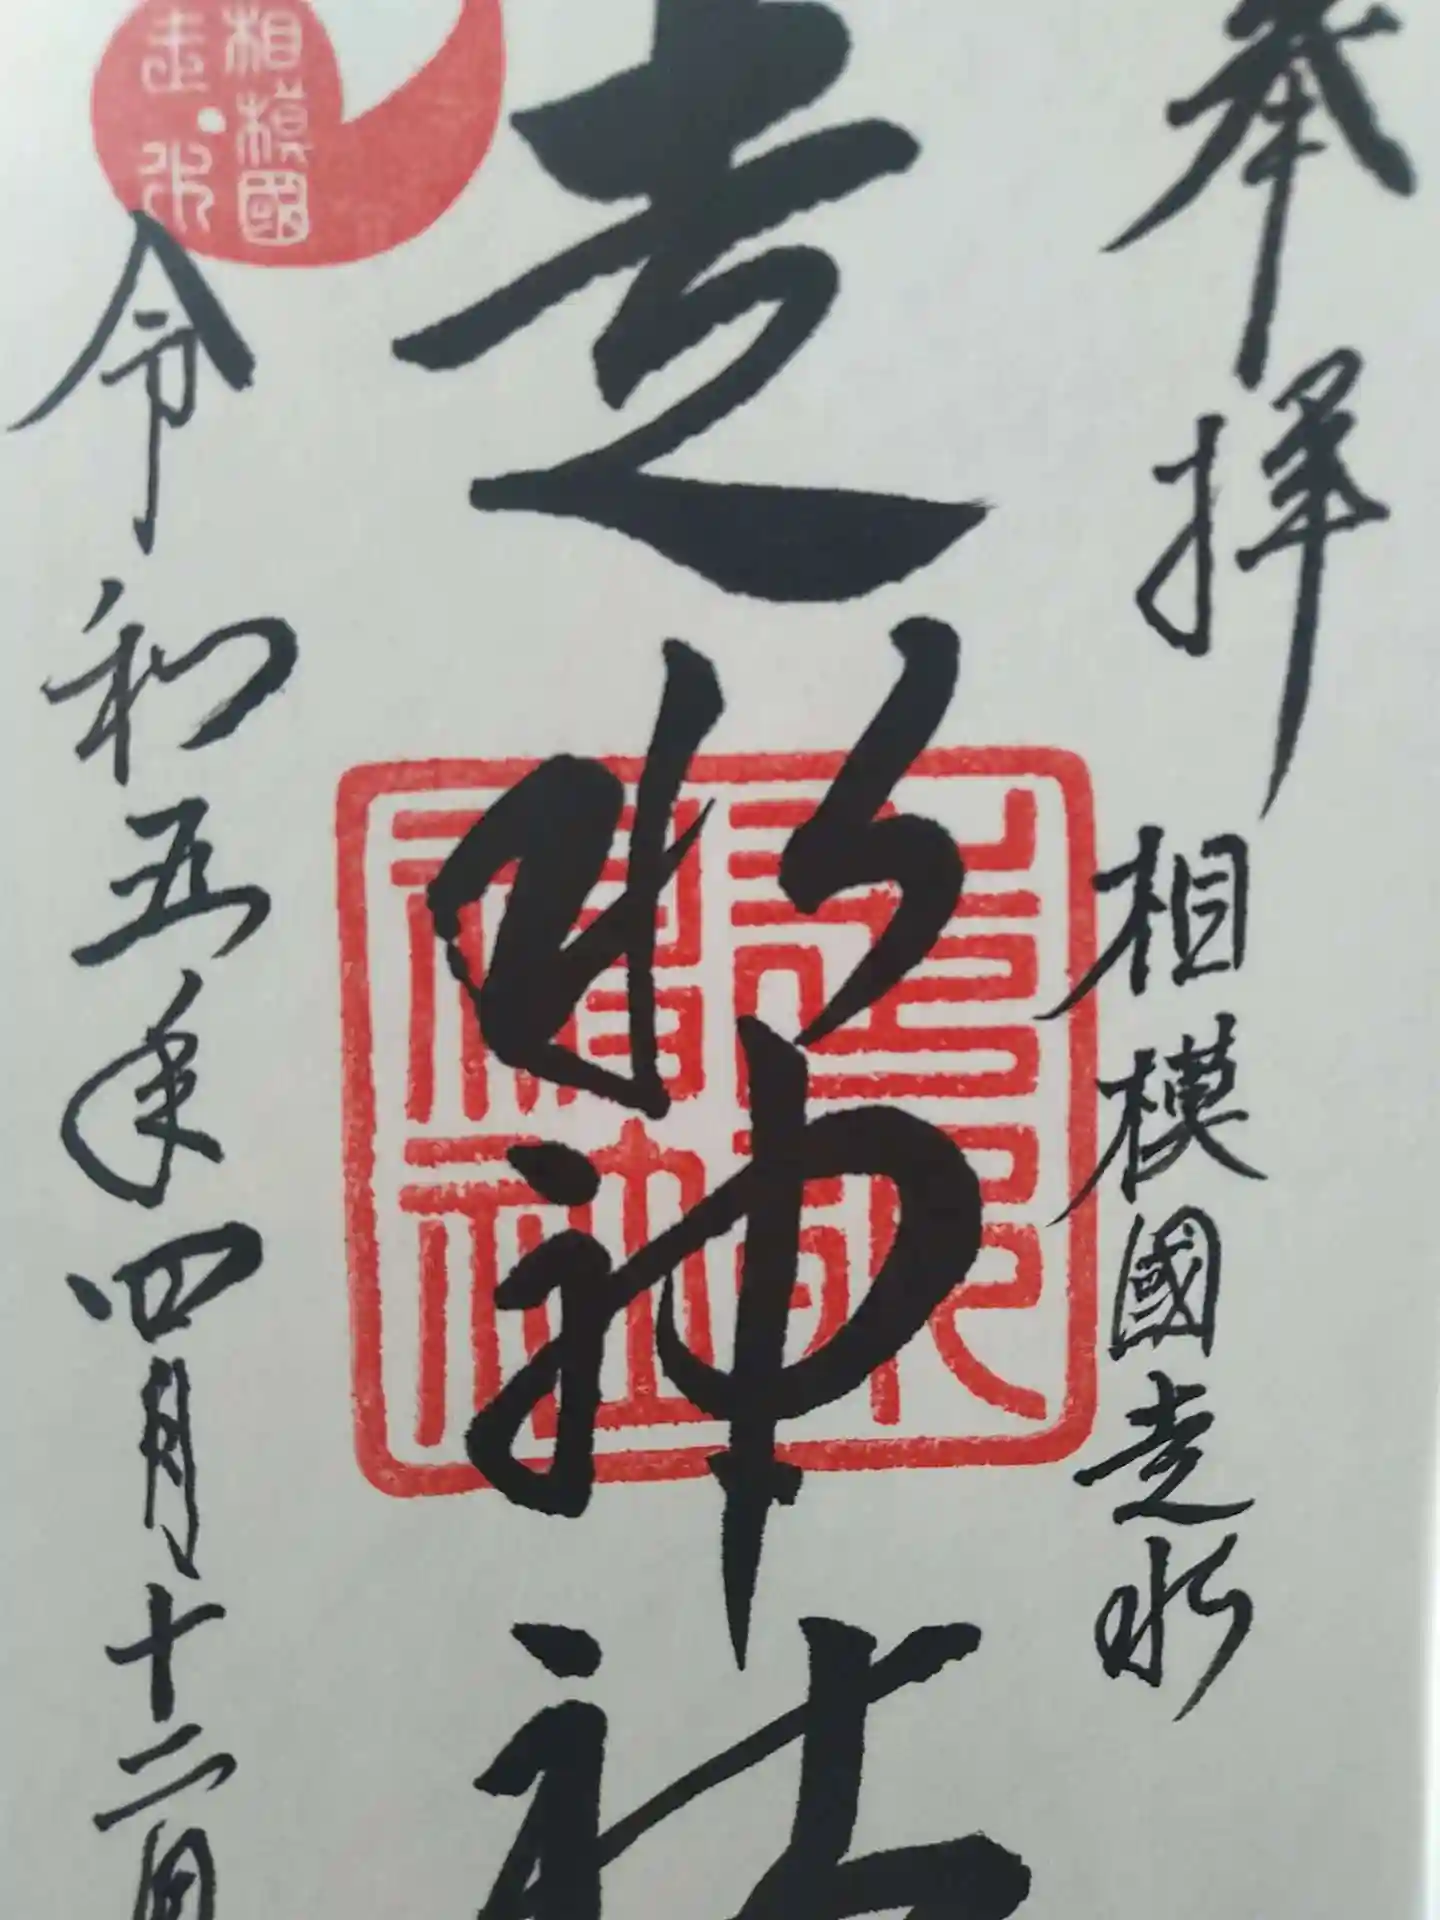 奉拝
相模國走水
走水神社
走水神社
相模國
走水
令和五年四月十二日